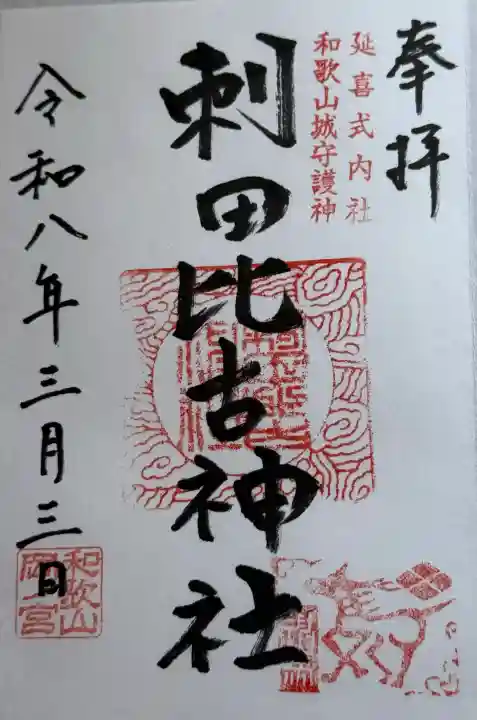 奉拝
延喜式内社
和歌山城守護神
刺田比古神社
令和八年三月三日
和歌山
岡ノ宮